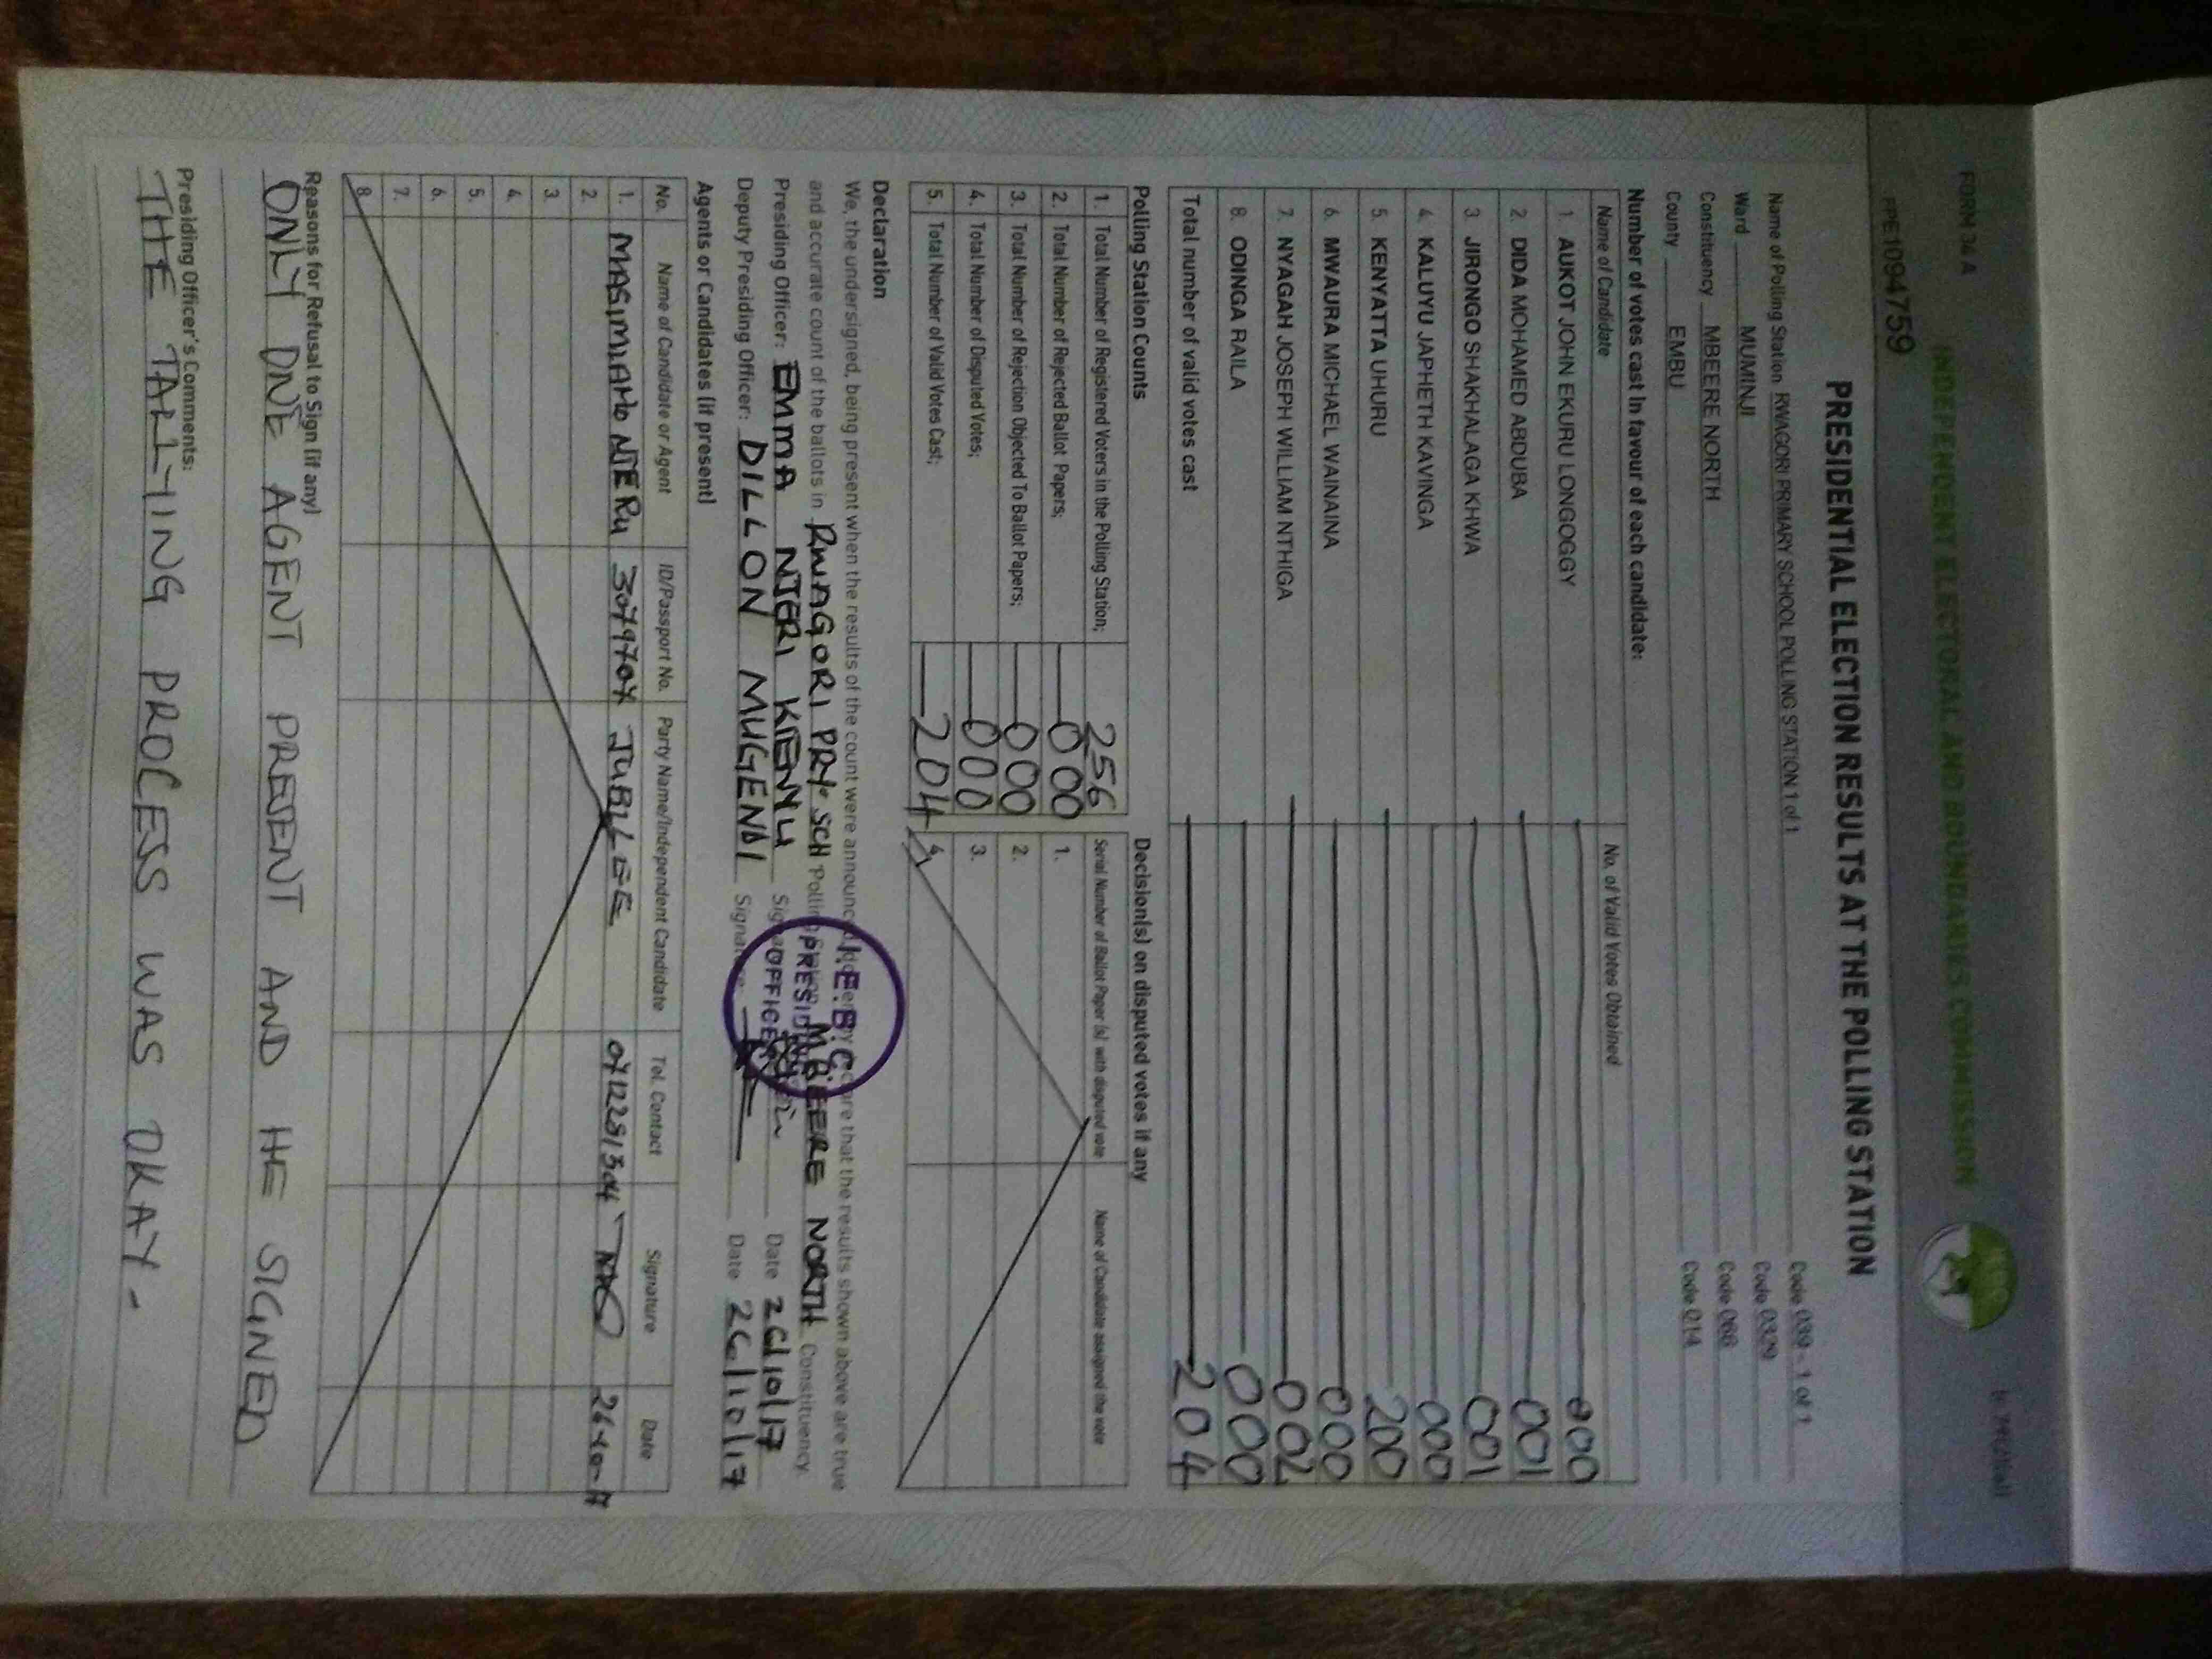 FORM 34 A
INDEPENDENT ELECTORAL AND BOUNDARIES COMMISSION
FPE1094759
PRESIDENTIAL ELECTION RESULTS AT THE POLLING STATION
Name of Polling Station RWAGORI PRIMARY SCHOOL POLLING STATION 1 of 1 Code 039 - 1 of 1
Ward MUMINJI Code 0329
Constituency MBEERE NORTH Code 066
County EMBU Code 014
Number of votes cast in favour of each candidate:
Name of Candidate No. of Valid Votes Obtained
1. AUKOT JOHN EKURU LONGOGGY 000
2. DIDA MOHAMED ABDUBA 001
3. JIRONGO SHAKHALAGA KHWA 001
4. KALUYU JAPHETH KAVINGA 000
5. KENYATTA UHURU 200
6. MWAURA MICHAEL WAINAINA 000
7. NYAGAH JOSEPH WILLIAM NTHIGA 002
8. ODINGA RAILA 000
Total number of valid votes cast 204
Polling Station Counts
1. Total Number of Registered Voters in the Polling Station; 256
2. Total Number of Rejected Ballot Papers; 000
3. Total Number of Rejection Objected To Ballot Papers; 000
4. Total Number of Disputed Votes; 000
5. Total Number of Valid Votes Cast; 204
Decision(s) on disputed votes if any
Serial Number of Ballot Paper (s) with disputed vote Name of Candidate assigned the vote
1.
2.
3.
4.
Declaration
We, the undersigned, being present when the results of the count were announced, do hereby declare that the results shown above are true
and accurate count of the ballots in RWAGORI PRY SCH Polling Station MBEERE NORTH Constituency.
Presiding Officer: EMMA NJERI KIENYU Signature Date 26/10/17
Deputy Presiding Officer: DILLON MUGENDI Signature Date 26/10/17
I.E.B.C.
PRESIDING
OFFICER
Agents or Candidates (if present)
No. Name of Candidate or Agent ID/Passport No. Party Name/Independent Candidate Tel. Contact Signature Date
1. NJERU JUBILEE 0712281304 26-10-17
2.
3.
4.
5.
6.
7.
8.
Reasons for Refusal to Sign (if any)
ONLY ONE AGENT PRESENT AND HE SIGNED
Presiding Officer's Comments:
THE TALLYING PROCESS WAS OKAY.